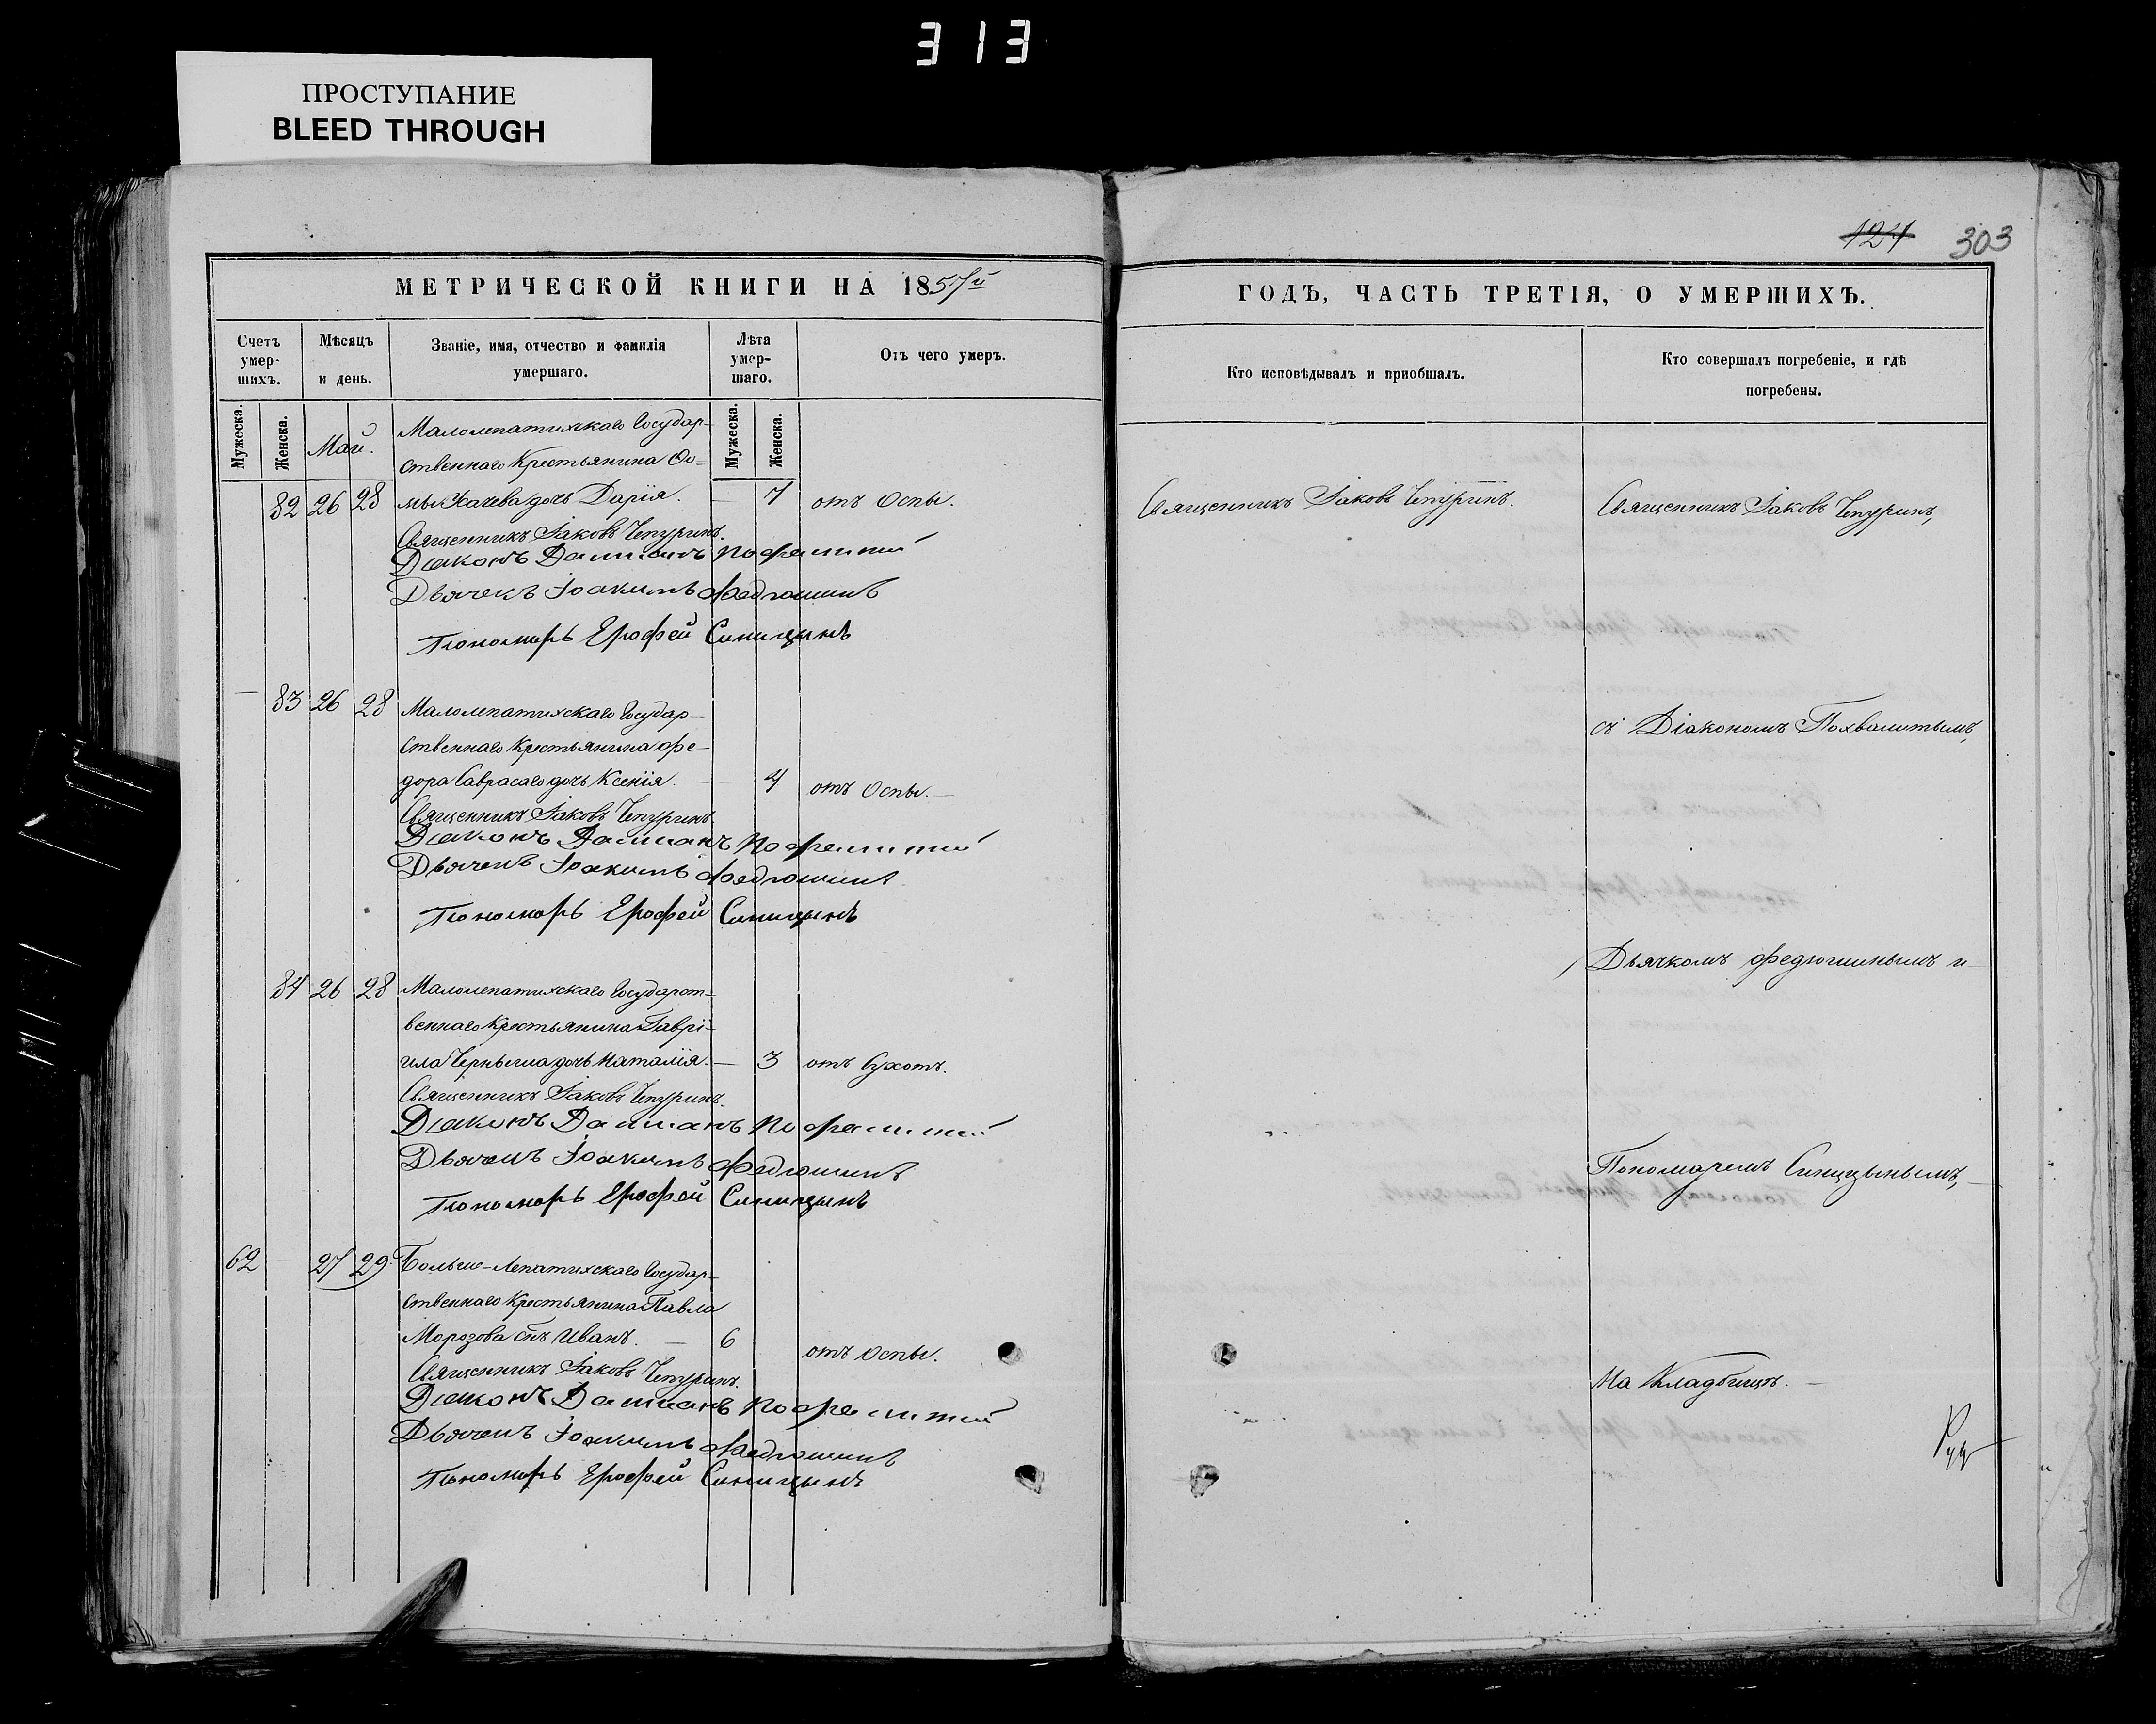 313
ПРОСТУПАНИЕ
BLEED THROUGH
124 303
МЕТРИЧЕСКОЙ КНИГИ НА 1857й
ГОДЪ, ЧАСТЬ ТРЕТІЯ, О УМЕРШИХЪ.
Счетъ умер-шихъ.
Мѣсяцъ и день.
Званіе, имя, отчество и фамилія умершаго.
Лѣта умер-шаго.
Отъ чего умеръ.
Кто исповѣдывалъ и приобщалъ.
Кто совершалъ погребеніе, и гдѣ погребены.
Мужеска. Женска.
Мужеска. Женска.
Май.
Малолепатихскаго Государ-
ственнаго Крестьянина Ѳо-
82 26 28 мы Усачева дочь Дарія. — 7 отъ Оспы.
Священникъ Іаковъ Чепуринъ.
Священникъ Іаковъ Чепуринъ,
Священникъ Іаковъ Чепуринъ.
Діаконъ Даміанъ
Дьячекъ Іоакимъ Федюшинъ
Пономарь Ерофей Синицынъ
— 83 26 28 Малолепатихскаго Государ-
ственнаго Крестьянина Фе-
дора Саврасаго дочь Ксенія. — 4 отъ Оспы. —
съ Діакономъ Похвалитымъ,
Священникъ Іаковъ Чепуринъ.
Діаконъ Даміанъ
Дьячекъ Іоакимъ Федюшинъ
Пономарь Ерофей Синицынъ
Дьячкомъ Федюшинымъ и
84 26 28 Малолепатихскаго Государст-
веннаго Крестьянина Гаврі-
ила Черныша дочь Наталія. — 3 отъ Сухотъ.
Священникъ Іаковъ Чепуринъ.
Діаконъ Даміанъ
Дьячекъ Іоакимъ Федюшинъ
Пономарь Ерофей Синицынъ
Пономаремъ Синицынымъ,
62 — 27 29 Больше-Лепатихскаго Государ-
ственнаго Крестьянина Павла
Морозова снъ Иванъ. — 6 отъ Оспы.
Священникъ Іаковъ Чепуринъ.
Діаконъ Даміанъ
Дьячекъ Іоакимъ Федюшинъ
Пономарь Ерофей Синицынъ
На Кладбищѣ. —